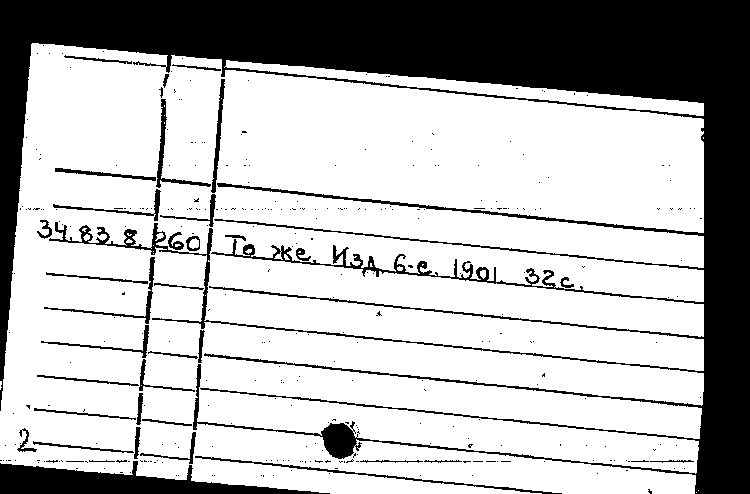 34.83.8.260 То же. Изд. 6-е. 1901. 32с.
2